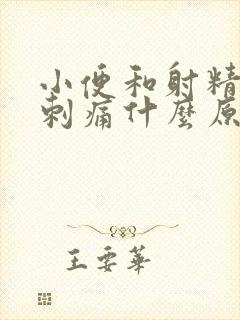 小便和射精
刺痛什麼原
王要華